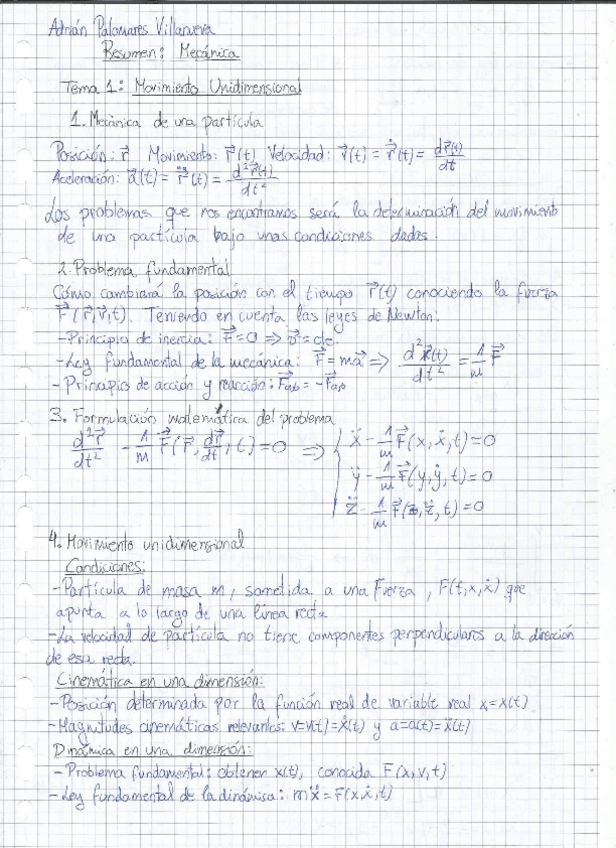 Adrián Palomares Villanueva
Resumen: Mecánica
Tema 1: Movimiento Unidimensional
1. Mecánica de una partícula
Posición: r⃗ Movimiento: r⃗(t) Velocidad: v⃗(t) = ṙ⃗(t) = dr⃗(t)/dt
Aceleración: a⃗(t) = r̈⃗(t) = d²r⃗(t)/dt²
Los problemas que nos encontramos será la determinación del movimiento
de una partícula bajo unas condiciones dadas.
2. Problema fundamental
Cómo cambiará la posición con el tiempo r⃗(t) conociendo la fuerza
F⃗(r⃗,v⃗,t). Teniendo en cuenta las leyes de Newton:
-Principio de inercia: F⃗=0 ⇒ v⃗=cte.
-Ley fundamental de la mecánica: F⃗=ma⃗ ⇒ d²r⃗(t)/dt² = 1/m F⃗
-Principio de acción y reacción: F⃗
3. Formulación matemática del problema
d²r⃗/dt² - 1/m F⃗(r⃗, dr⃗/dt, t)=0 ⇒ { ẍ - 1/m F⃗(x,ẋ,t)=0
ÿ - 1/m F⃗(y,ẏ,t)=0
z̈ - 1/m F⃗(z,ż,t)=0
4. Movimiento unidimensional
Condiciones:
-Partícula de masa m, sometida a una Fuerza, F(t,x,ẋ) que
apunta a lo largo de una línea recta
-La velocidad de partícula no tiene componentes perpendiculares a la dirección
de esa recta.
Cinemática en una dimensión:
-Posición determinada por la función real de variable real x=x(t)
-Magnitudes cinemáticas relevantes: v=v(t)=ẋ(t) y a=a(t)=ẍ(t)
Dinámica en una dimensión:
-Problema fundamental: obtener x(t), conocida F(x,v,t)
-Ley fundamental de la dinámica: mẍ = F(x,ẋ,t)